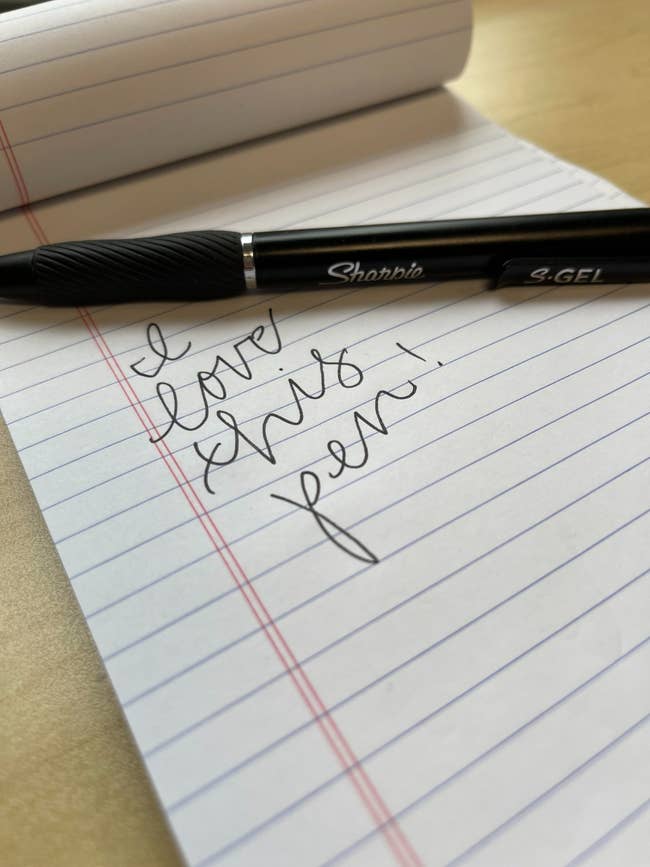 Sharpie
S·GEL
I
love
this
pen!